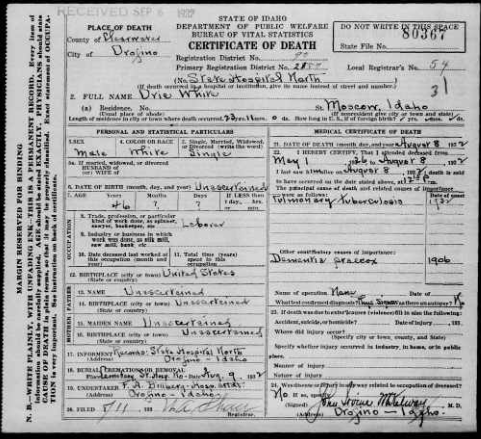 RECEIVED SEP 6 1932
STATE OF IDAHO
DEPARTMENT OF PUBLIC WELFARE
BUREAU OF VITAL STATISTICS
CERTIFICATE OF DEATH
DO NOT WRITE IN THIS SPACE
80367
State File No.
PLACE OF DEATH
County of Clearwater
City of Orofino
Registration District No.
Primary Registration District No.
Local Registrar's No. 54
31
(No. State Hospital North
(If death occurred in a hospital or institution, give its name instead of street and number.)
2. FULL NAME Urie White
(a) Residence. No. St. Moscow, Idaho
(Usual place of abode) (If nonresident give city or town and state)
Length of residence in city or town where death occurred 23 yrs. 11 mos. 0 ds. How long in U. S., if of foreign birth? yrs. mos. ds.
PERSONAL AND STATISTICAL PARTICULARS
3. SEX
Male
4. COLOR OR RACE
White
5. Single, Married, Widowed, or Divorced (write the word)
Single
5a. If married, widowed, or divorced
HUSBAND of
(or) WIFE of
6. DATE OF BIRTH (month, day, and year) Unascertained
7. AGE Years Months Days If LESS than
46 ?
8. Trade, profession, or particular kind of work done, as spinner, sawyer, bookkeeper, etc. Laborer
9. Industry or business in which work was done, as silk mill, saw mill, bank etc.
10. Date deceased last worked at this occupation (month and year)
11. Total time (years) spent in this occupation
12. BIRTHPLACE (city or town) United States
(State or country)
13. NAME Unascertained
14. BIRTHPLACE (city or town) Unascertained
(State or country)
15. MAIDEN NAME Unascertained
16. BIRTHPLACE (city or town) Unascertained
(State or country)
17. INFORMANT Records State Hospital North
Orofino Idaho
18. BURIAL, CREMATION OR REMOVAL
Place Date Aug. 9, 1932
19. UNDERTAKER
Orofino - Idaho
20. FILED 193
MEDICAL CERTIFICATE OF DEATH
21. DATE OF DEATH (month, day and year) August 8 1932
22. I HEREBY CERTIFY, That I attended deceased from
May 1 to August 8, 1932
I last saw him alive on August 8, 1932, death is said
to have occurred on the date stated above, at
The principal cause of death and related causes of importance were as follows:
Pulmonary Tuberculosis
Other contributory causes of importance:
Dementia praecox 1906
Name of operation None Date of
What test confirmed diagnosis? Was there an autopsy? No
23. If death was due to external causes (violence) fill in also the following:
Accident, suicide, or homicide? Date of injury , 193
Where did injury occur?
(Specify city or town, county, and State)
Specify whether injury occurred in industry, in home, or in public place.
Manner of injury
Nature of injury
24. Was disease or injury in any way related to occupation of deceased?
No If so, specify
(Signed) John Irvine
Orofino - Idaho.
MARGIN RESERVED FOR BINDING
OCCUPATION
FATHER
MOTHER